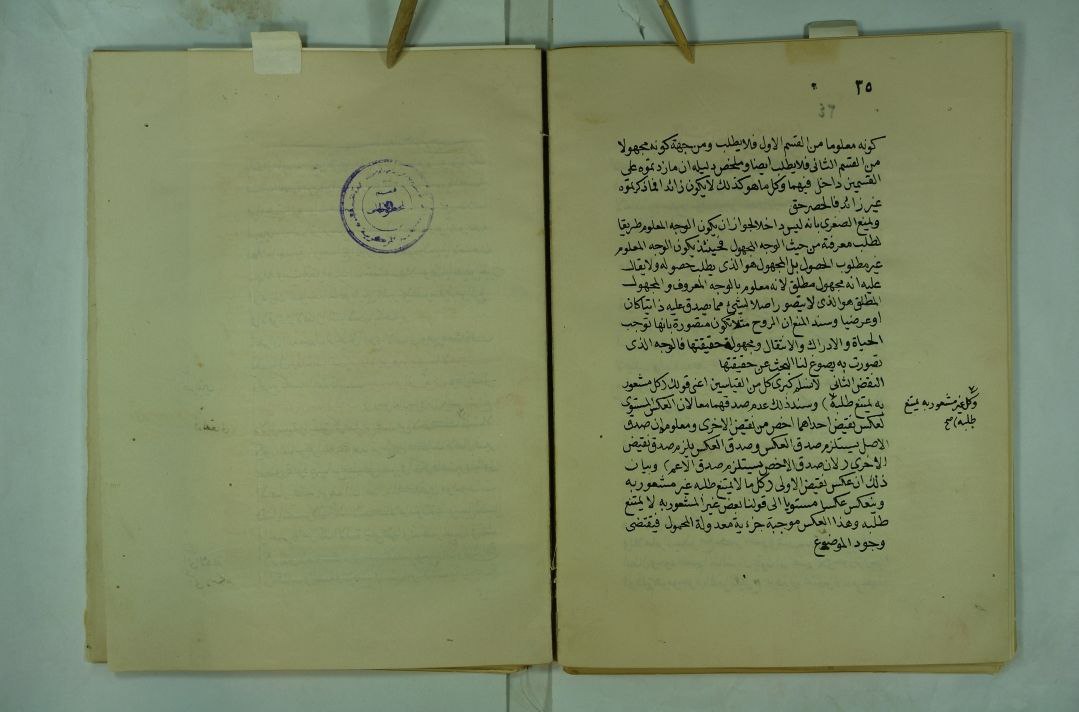 ٣٥
٣٦
كونه معلوما من القسم الاول فلا يطلب ومن جهة كونه مجهولا
من القسم الثانى فلا يطلب ايضا وملخص دليله ان ما زدتموه على
القسمين داخل فيهما وكل ما هو كذلك لا يكون زائدا فما ذكرتموه
غير زائد فالحصر حق
ويمنع الصغرى بانه ليس داخلا لجواز ان يكون الوجه المعلوم طريقا
لطلب معرفته من حيث الوجه المجهول فحينئذ يكون الوجه المعلوم
غير مطلوب الحصول بل المجهول هو الذى يطلب حصوله ولا يقال
عليه انه مجهول مطلق لانه معلوم بالوجه المعروف والمجهول
المطلق هو الذى لا يتصور اصلا لشئ مما يصدق عليه ذاتيا كان
او عرضيا وسند المنع ان الروح مثلا تكون متصورة بانها توجب
الحياة والادراك والانتقال ومجهولة حقيقتها فالوجه الذى
تصورت به يصوغ لنا البحث عن حقيقتها
النقض الثانى لا نسلم كبرى كل من القياسين اعنى قولك (كل مشعور
به يمتنع طلبه) وسند ذلك عدم صدقهما معا لان العكس المستوى
لعكس نقيض احداهما اخص من نقيض الاخرى ومعلوم ان صدق
الاصل يستلزم صدق العكس وصدق العكس يلزم صدق نقيض
الاخرى (لان صدق الاخص يستلزم صدق الاعم) وبيان
ذلك ان عكس نقيض الاولى (كل ما لا يمتنع طلبه غير مشعور به
وينعكس عكسا مستويا الى قولنا بعض غير المشعور به لا يمتنع
طلبه وهذا العكس موجبة جزئية معدولة المحمول فيقتضى
وجود الموضوع
وكل غير مشعور به يمتنع
طلبه صح
قسم